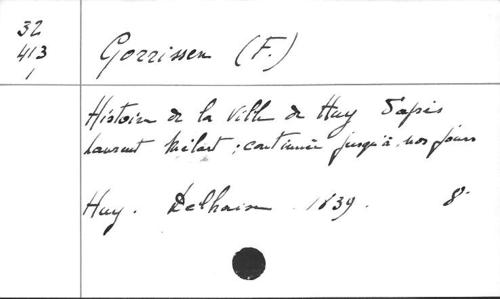 32
413
1
Gorrissen (F.)
Histoire de la ville de Huy d'après
Laurent Mélart ; continuée jusqu'à nos jours
Huy. Delhaise 1839. 8°